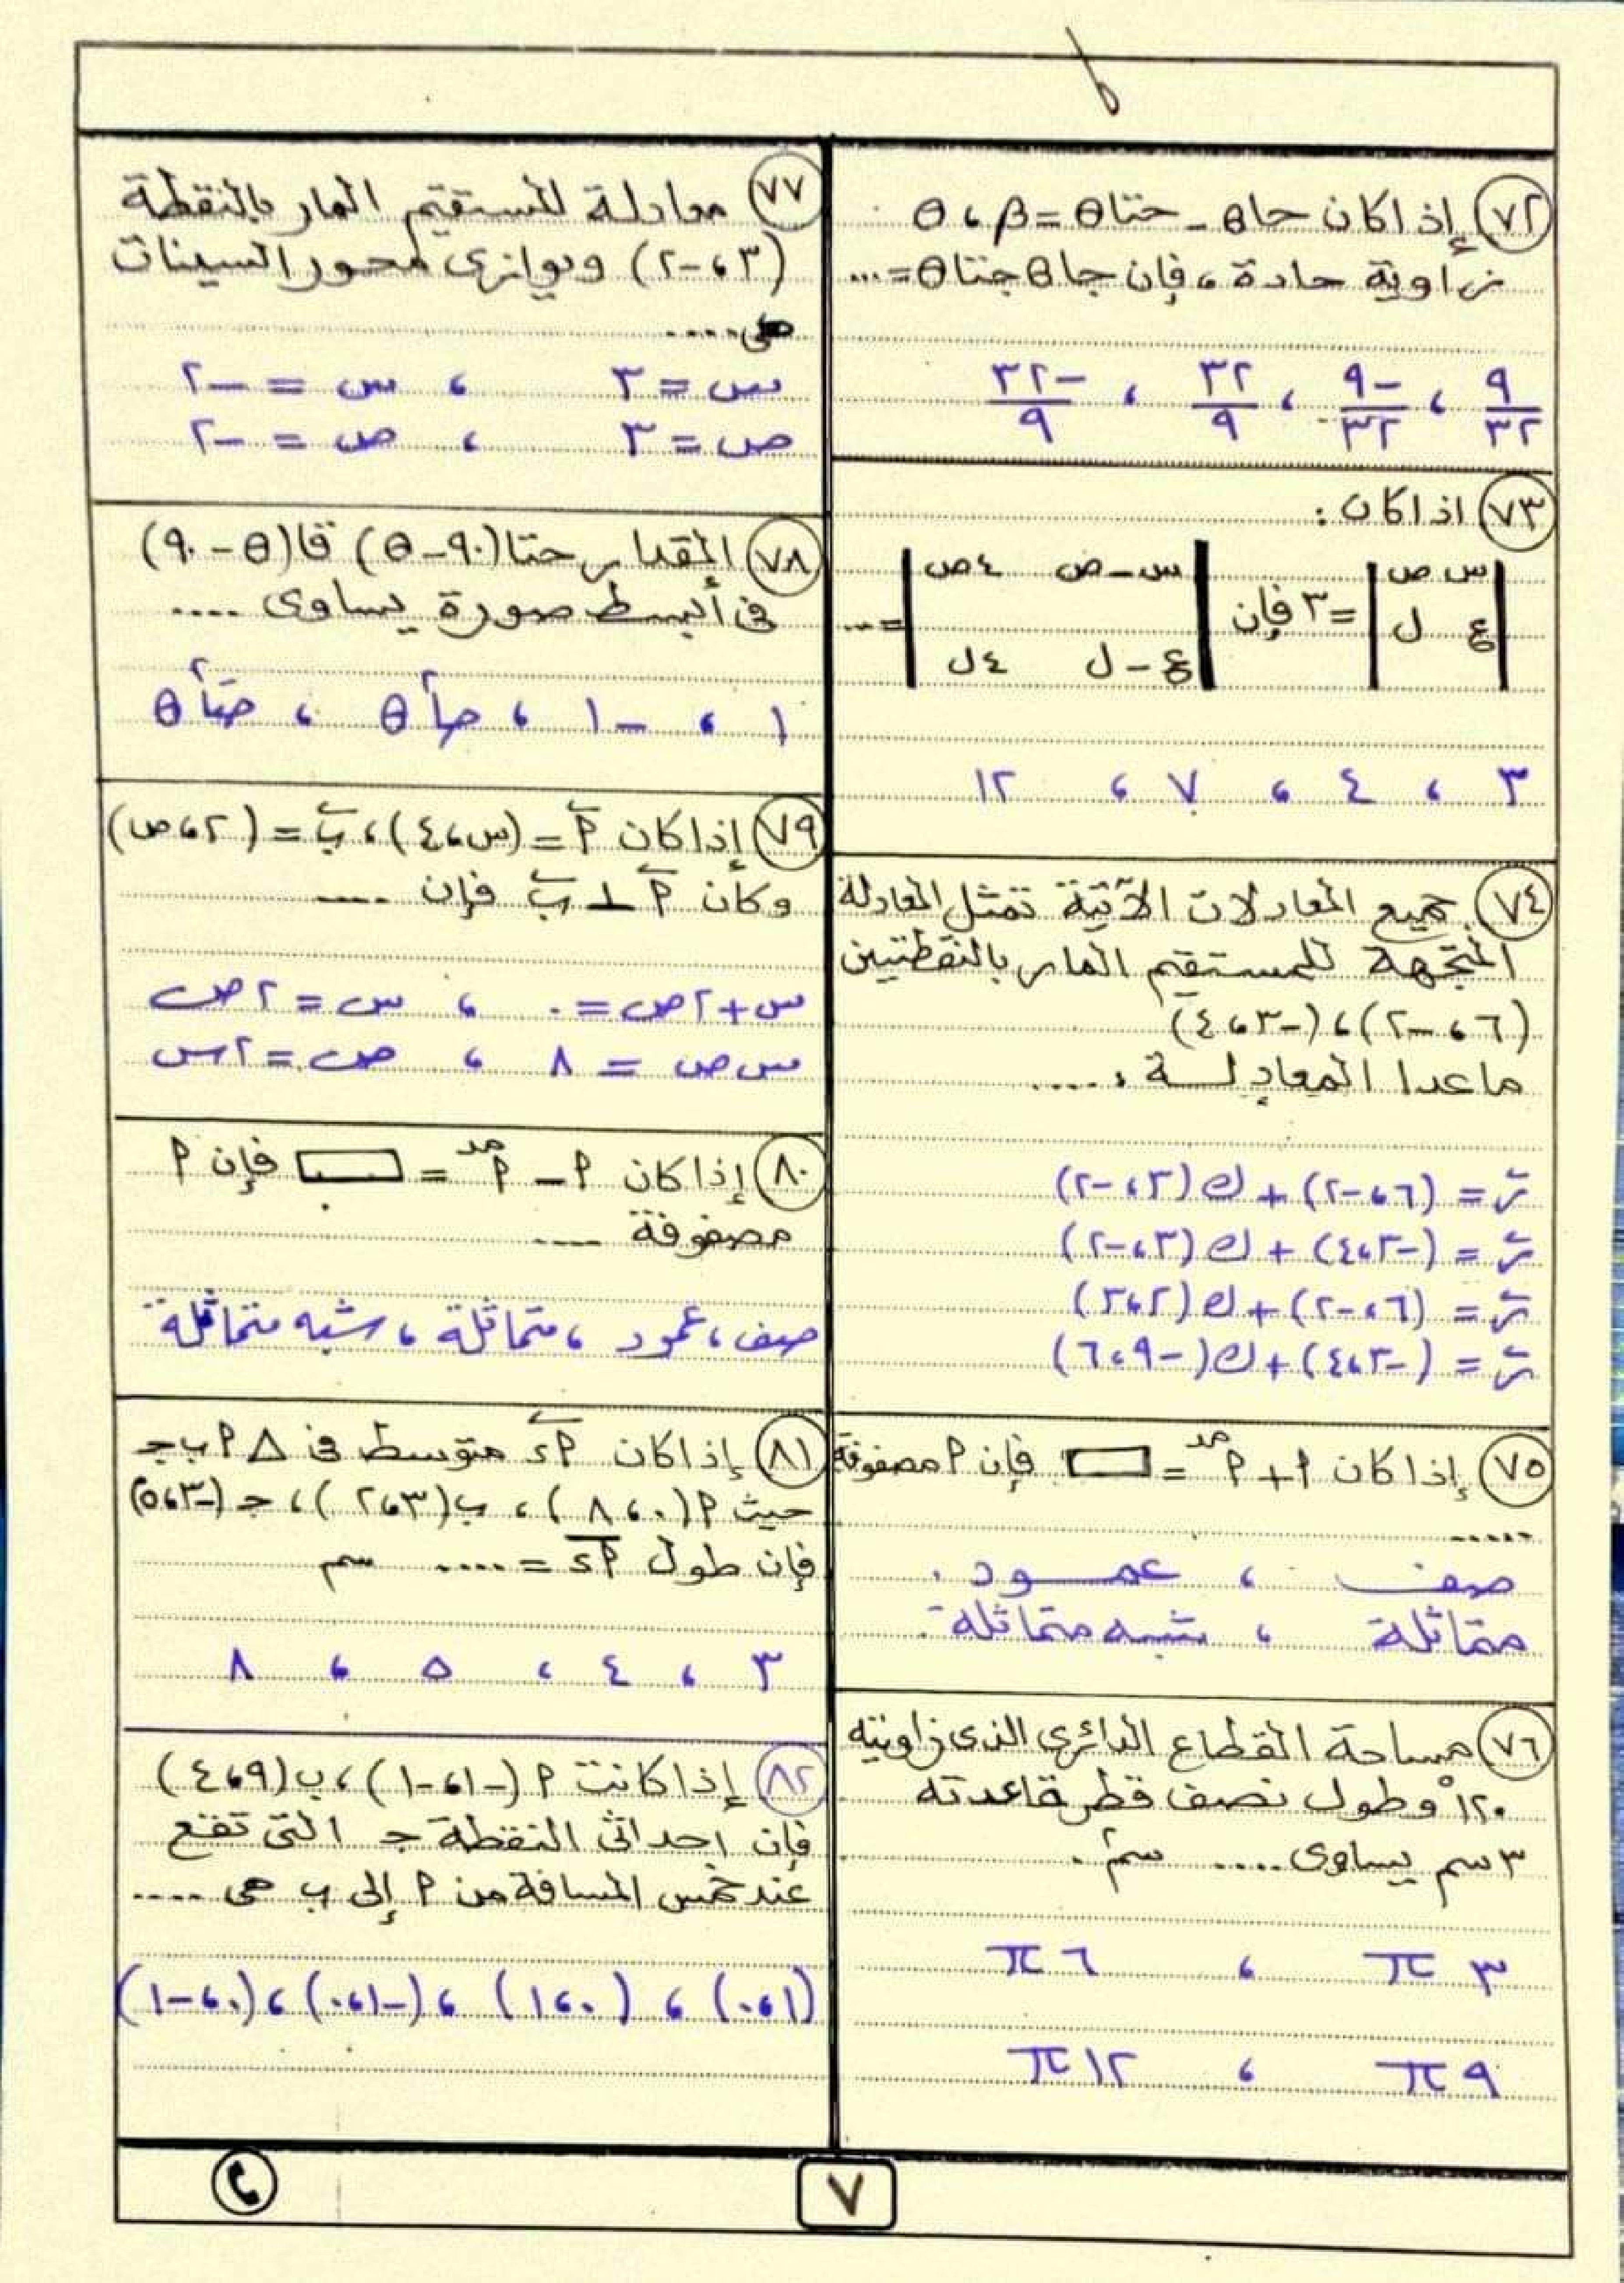 ٧٢ إذا كان حاθ - حتاθ = β ، θ
زاوية حادة ، فإن جاθ جتاθ = ...
٩/٣٢ ، -٩/٣٢ ، ٣٢/٩ ، -٣٢/٩
٧٣ اذا كان :
|س ص| |س - ص ٤ص|
= ٣ فإن = ...
|ع ل| |ع - ل ٤ل|
٣ ، ٤ ، ٧ ، ١٢
٧٤ جميع المعادلات الآتية تمثل المعادلة
المتجهة للمستقيم المار بالنقطتين
(٦ ، -٢) ، (-٣ ، ٤)
ماعدا المعادلة .....
ر = (٦ ، -٢) + ك (٣ ، -٢)
ر = (-٣ ، ٤) + ك (٣ ، -٢)
ر = (٦ ، -٢) + ك (٢ ، ٣)
ر = (-٣ ، ٤) + ك (-٩ ، ٦)
٧٥ إذا كان ٢ + ٢مد = فإن ٢ مصفوفة
.....
صف ، عمود .
متماثلة ، شبه متماثلة .
٧٦ مساحة القطاع الدائري الذى زاويته
١٢٠° وطول نصف قطر قاعدته
٣ سم يساوى .... سم٢ .
٣ π ، ٦ π
٩ π ، ١٢ π
٧٧ معادلة المستقيم المار بالنقطة
(٣ ، -٢) ويوازى محور السينات
هى ....
س = ٣ ، س = -٢
ص = ٣ ، ص = -٢
٧٨ المقدار حتا(٩٠ - θ) قا(θ - ٩٠)
فى أبسط صورة يساوى ....
١ ، -١ ، حا٢ θ ، حتا٢ θ
٧٩ إذا كان ٢ = (س ، ٤) ، ب = (٢ ، ص)
وكان ٢ ⊥ ب فإن ....
س + ٢ص = ٠ ، س = ٢ص
س ص = ٨ ، ص = ٢س
٨٠ إذا كان ٢ - ٢مد = فإن ٢
مصفوفة ....
صف ، عمود ، متماثلة ، شبه متماثلة
٨١ إذا كان ٢ء متوسط فى Δ ٢ب جـ
حيث ٢(٠ ، ٨) ، ب(٣ ، ٢) ، جـ(-٣ ، ٥)
فإن طول ٢ء = .... سم
٣ ، ٤ ، ٥ ، ٨
٨٢ إذا كانت ٢(-١ ، -١) ، ب(٩ ، ٤)
فإن احداثى النقطة جـ التى تقع
عند خمس المسافة من ٢ إلى ب هى ....
(١ ، ٠) ، (٠ ، ١) ، (-١ ، ٠) ، (٠ ، -١)
٧